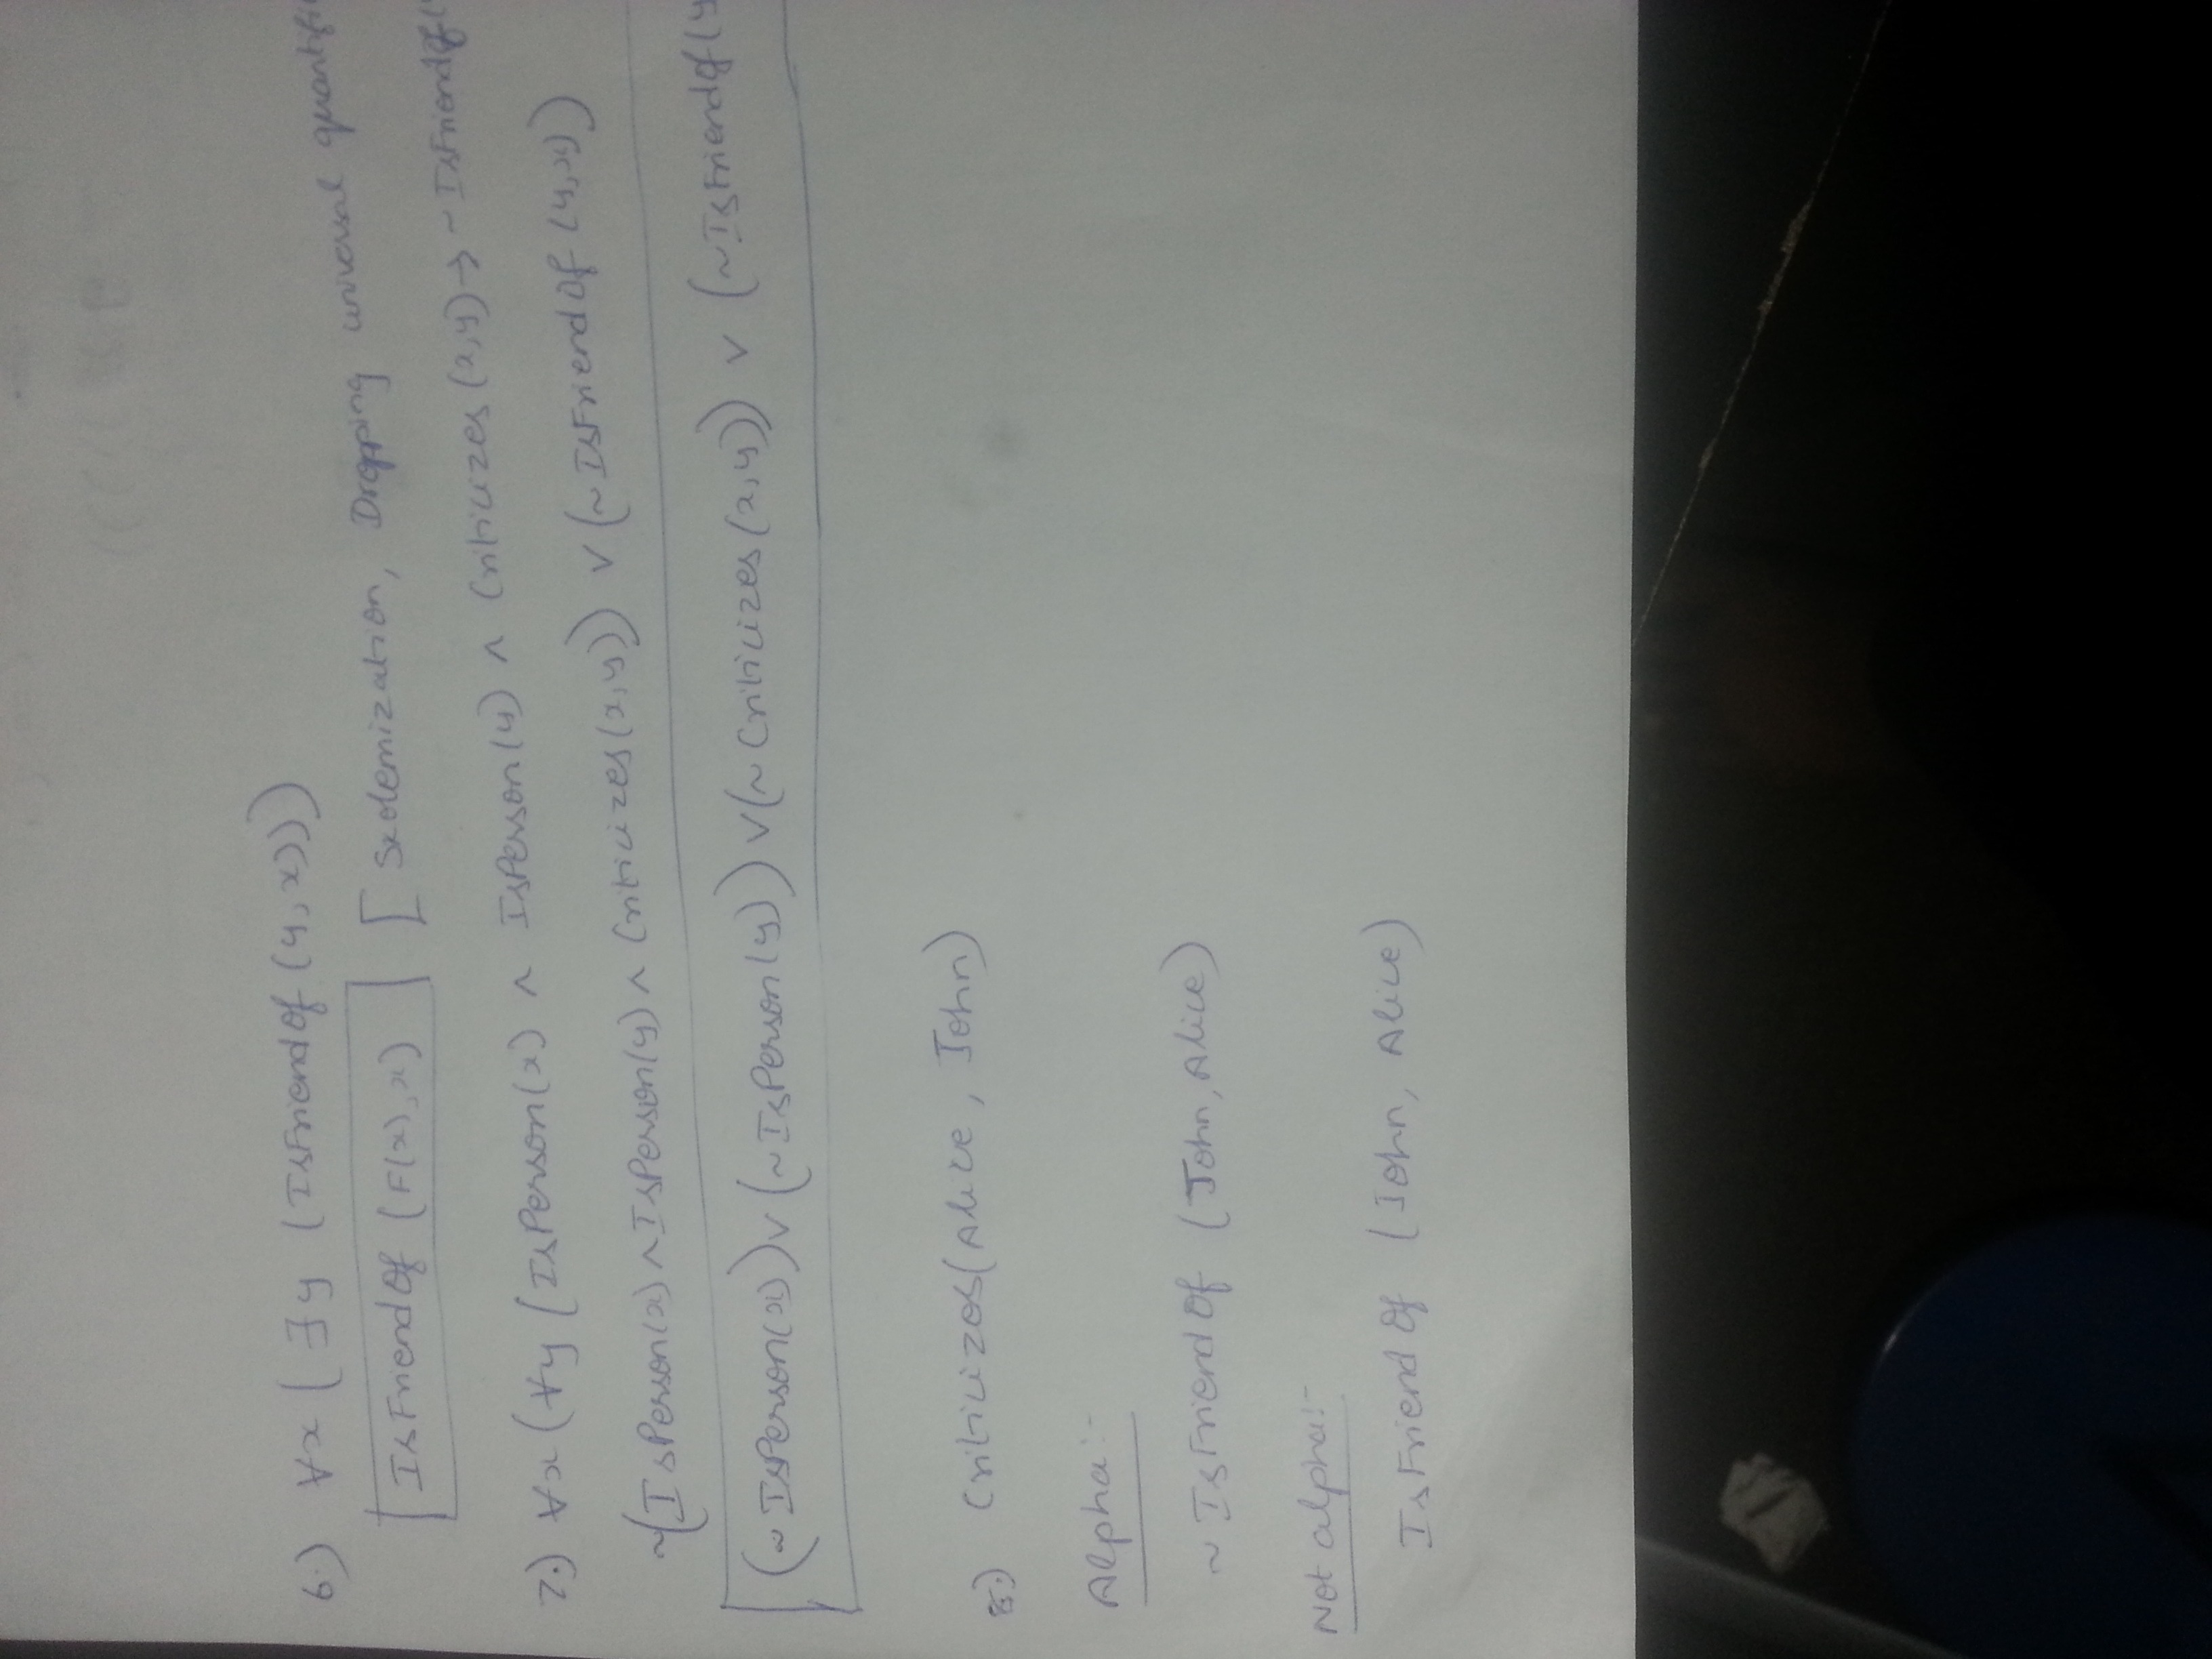 6.) ∀x (∃y (IsFriendOf (y, x)))
IsFriendOf (F(x), x) [Skolemization, Dropping universal
7.) ∀x (∀y (IsPerson(x) ∧ IsPerson(y) ∧ Criticizes(x,y) → ~IsFriendOf(
~(IsPerson(x) ∧ IsPerson(y) ∧ Criticizes(x,y)) ∨ (~IsFriendOf (y,x))
(~IsPerson(x)) ∨ (~IsPerson(y)) ∨ (~Criticizes(x,y)) ∨ (~IsFriendOf(y
8.) Criticizes(Alice, John)
Alpha:-
~ IsFriendOf (John, Alice)
Not alpha:-
IsFriendOf (John, Alice)